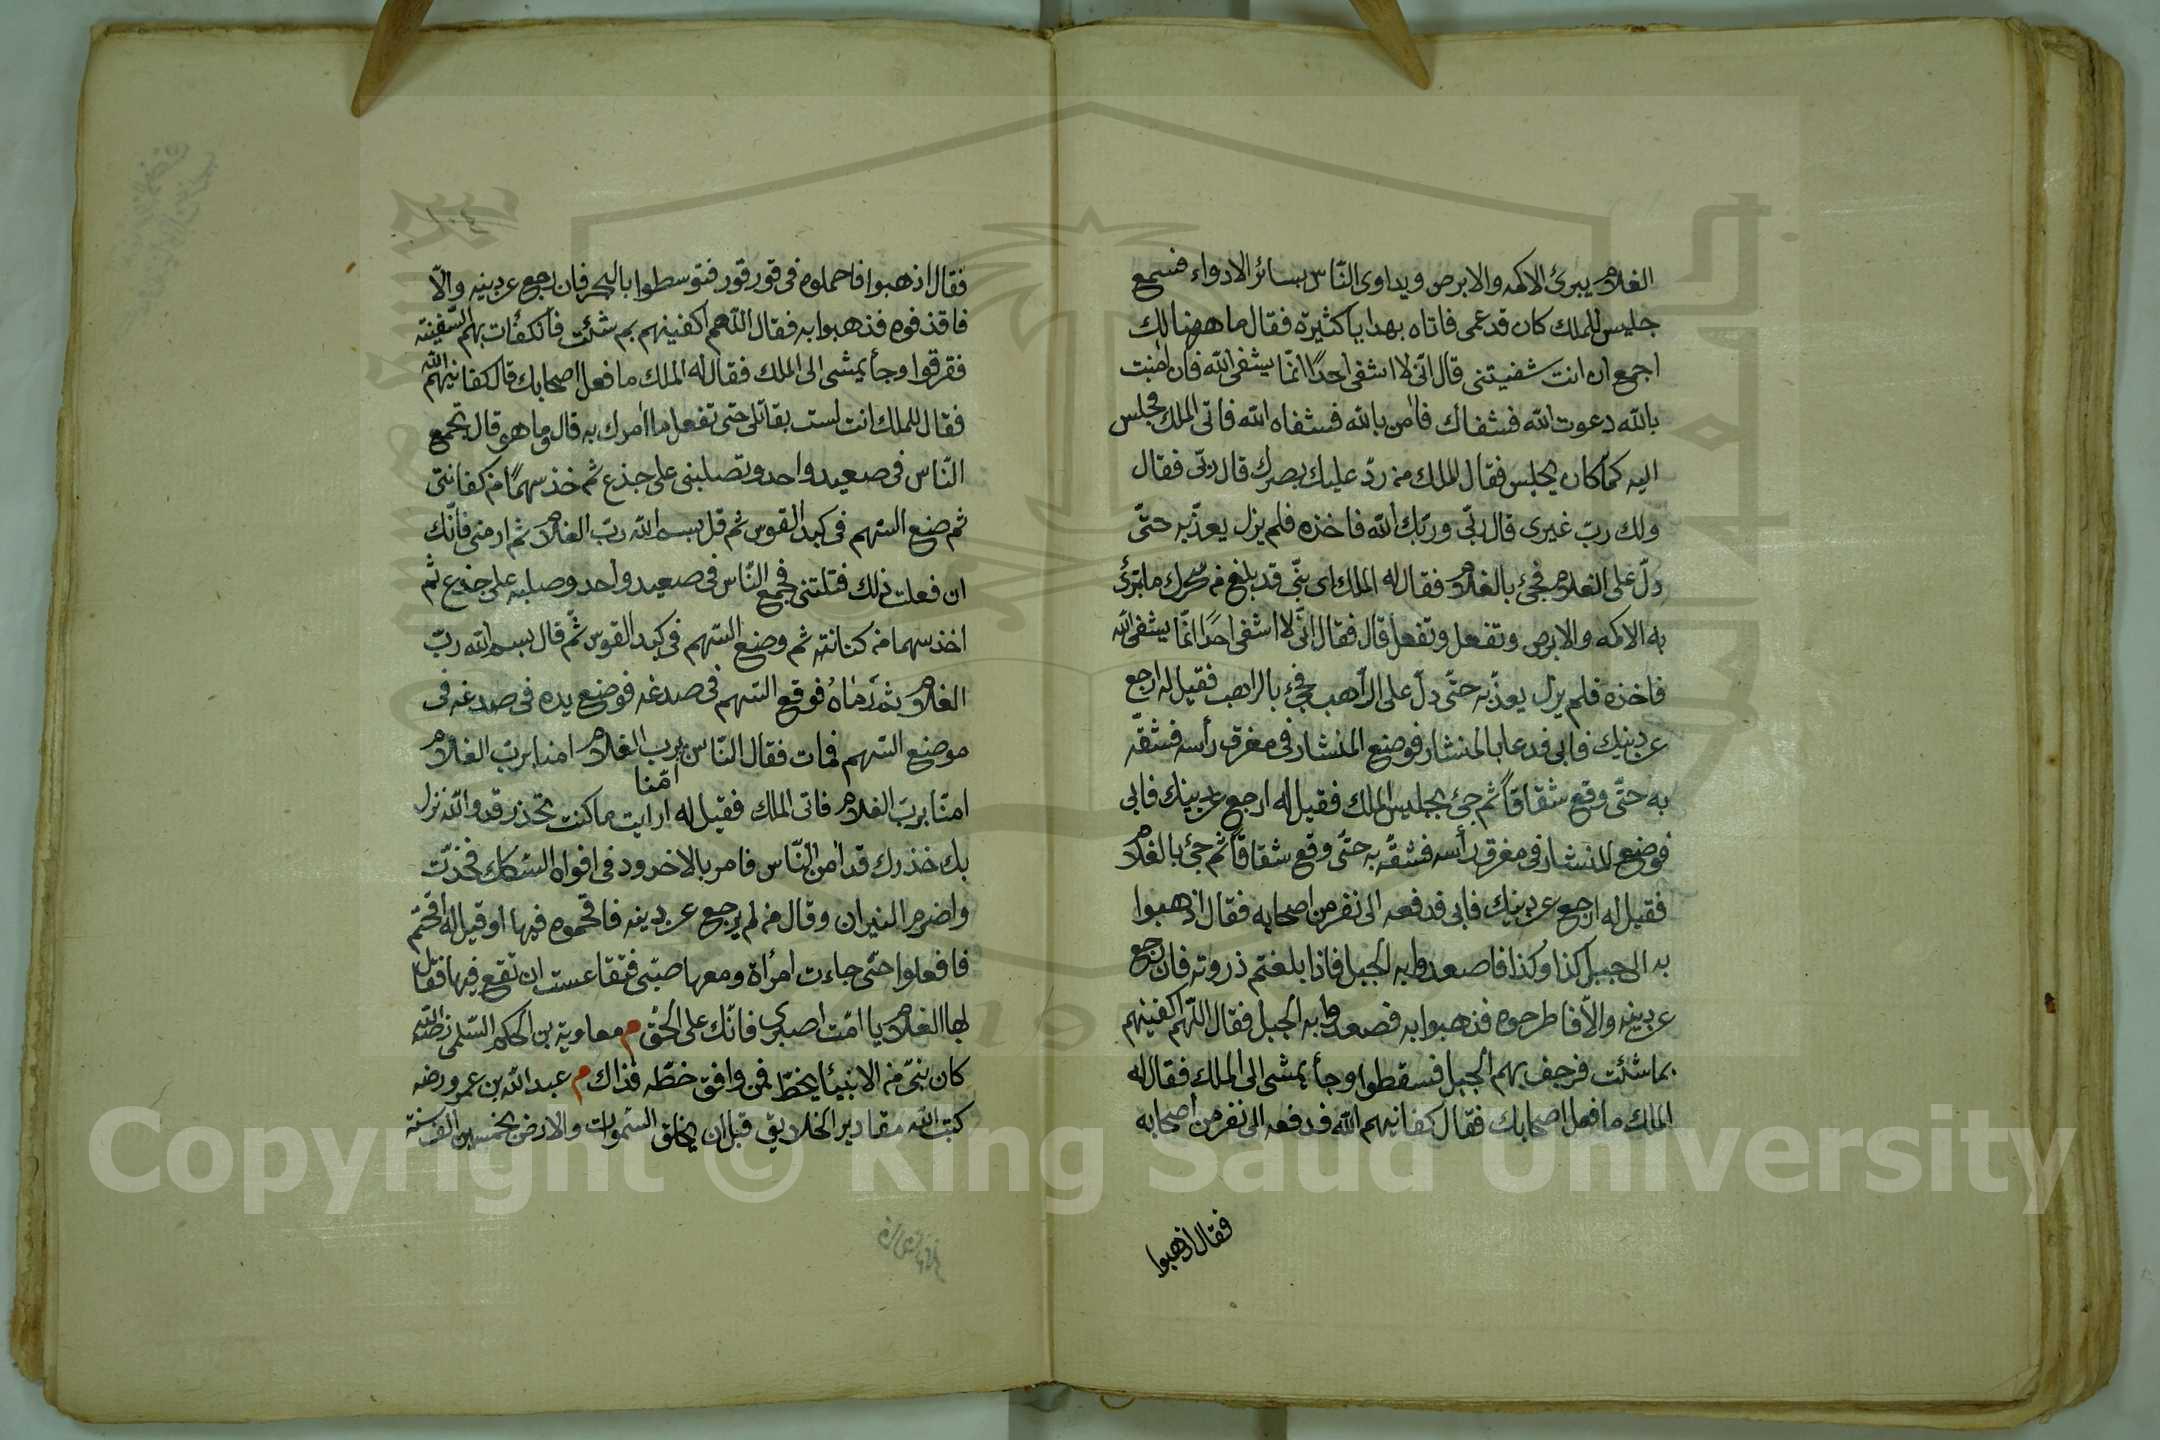 الغلام يبرئ الاكمه والابرص ويداوى النّاس بسائر الادواء فسمع
جليس للملك كان قد عمى فاتاه بهدايا كثيرة فقال ما ههنا لك
اجمع ان انت شفيتنى قال انّى لا اشفى احدًا انّما يشفى الله فان امنت
بالله دعوت الله فشفاك فامن بالله فشفاه الله فاتى الملك فجلس
اليه كما كان يجلس فقال الملك من ردّ عليك بصرك قال ربّى فقال
ولك ربّ غيرى قال ربّى وربّك الله فاخذه فلم يزل يعذّبه حتّى
دلّ على الغلام فجئ بالغلام فقال له الملك اى بنّى قد بلغ من سحرك ما تبرئ
به الاكمه والابرص وتفعل وتفعل قال فقال انّى لا اشفى احدًا انّما يشفى الله
فاخذه فلم يزل يعذّبه حتّى دلّ على الرّاهب فجئ بالراهب فقيل له ارجع
عن دينك فابى فدعا بالمنشار فوضع المنشار فى مفرق رأسه فشقّه
به حتّى وقع شقاقاً ثم جئ بجليس الملك فقيل له ارجع عن دينك فابى
فوضع المنشار فى مفرق رأسه فشقّه به حتّى وقع شقاقاً ثم جئ بالغلام
فقيل له ارجع عن دينك فابى فدفعه الى نفر من اصحابه فقال اذهبوا
به الى جبل كذا وكذا فاصعدوا به الجبل فاذا بلغتم ذروته فان رجع
عن دينه والّا فاطرحوه فذهبوا به فصعدوا به الجبل فقال اللّهم اكفنيهم
بما شئت فرجف بهم الجبل فسقطوا وجأ يمشى الى الملك فقال له
الملك ما فعل اصحابك فقال كفانيهم الله فدفعه الى نفر من اصحابه
فقال اذهبوا
١٠٤
فقال اذهبوا فاحملوه فى قور قور فتوسطوا بالبحر فان رجع عن دينه والّا
فاقذفوه فذهبوا به فقال اللّهم اكفنيهم بم شئت فانكفأت بهم السّفينة
فغرقوا وجأ يمشى الى الملك فقال له الملك ما فعل اصحابك قال كفانيهم الله
فقال للملك انت لست بقاتلى حتى تفعل ما امرك به قال وما هو قال تجمع
النّاس فى صعيد واحد وتصلبنى على جذع ثم خذ سهمًا من كفانتى
ثم ضع السّهم فى كبد القوس ثم قل بسم الله ربّ الغلام ثم ارمنى فانّك
ان فعلت ذلك قتلتنى فجمع النّاس فى صعيد واحد وصلبه على جذع ثم
اخذ سهما من كنانته ثم وضع السّهم فى كبد القوس ثم قال بسم الله ربّ
الغلام ثم رماه فوقع السّهم فى صدغه فوضع يده فى صدغه فى
موضع السّهم فمات فقال النّاس برب الغلام امنا بربّ الغلام
امنا
امنّا بربّ الغلام فاتى الملك فقيل له ارايت ما كنت تحذر قد والله نزل
بك حذرك قد امن النّاس فامر بالاخدود فى افواه السّكك فخدّت
واضرم النيران وقال من لم يرجع عن دينه فاقحموه فيها او قيل له اقتحم
فافعلوا حتّى جاءت امرأة ومعها صبّى فتقاعست ان تقع فيها فقال
لها الغلام يا امّت اصبرى فانّك على الحقّ م معاوية بن الحكم السّلمى
كان نبىّ من الانبيأ يخطّ فمن وافق خطّه فذاك م عبد الله بن عمرو رضه
كتب الله مقادير الخلايق قبل ان يخلق السّموات والارض بخمسين الف سنة